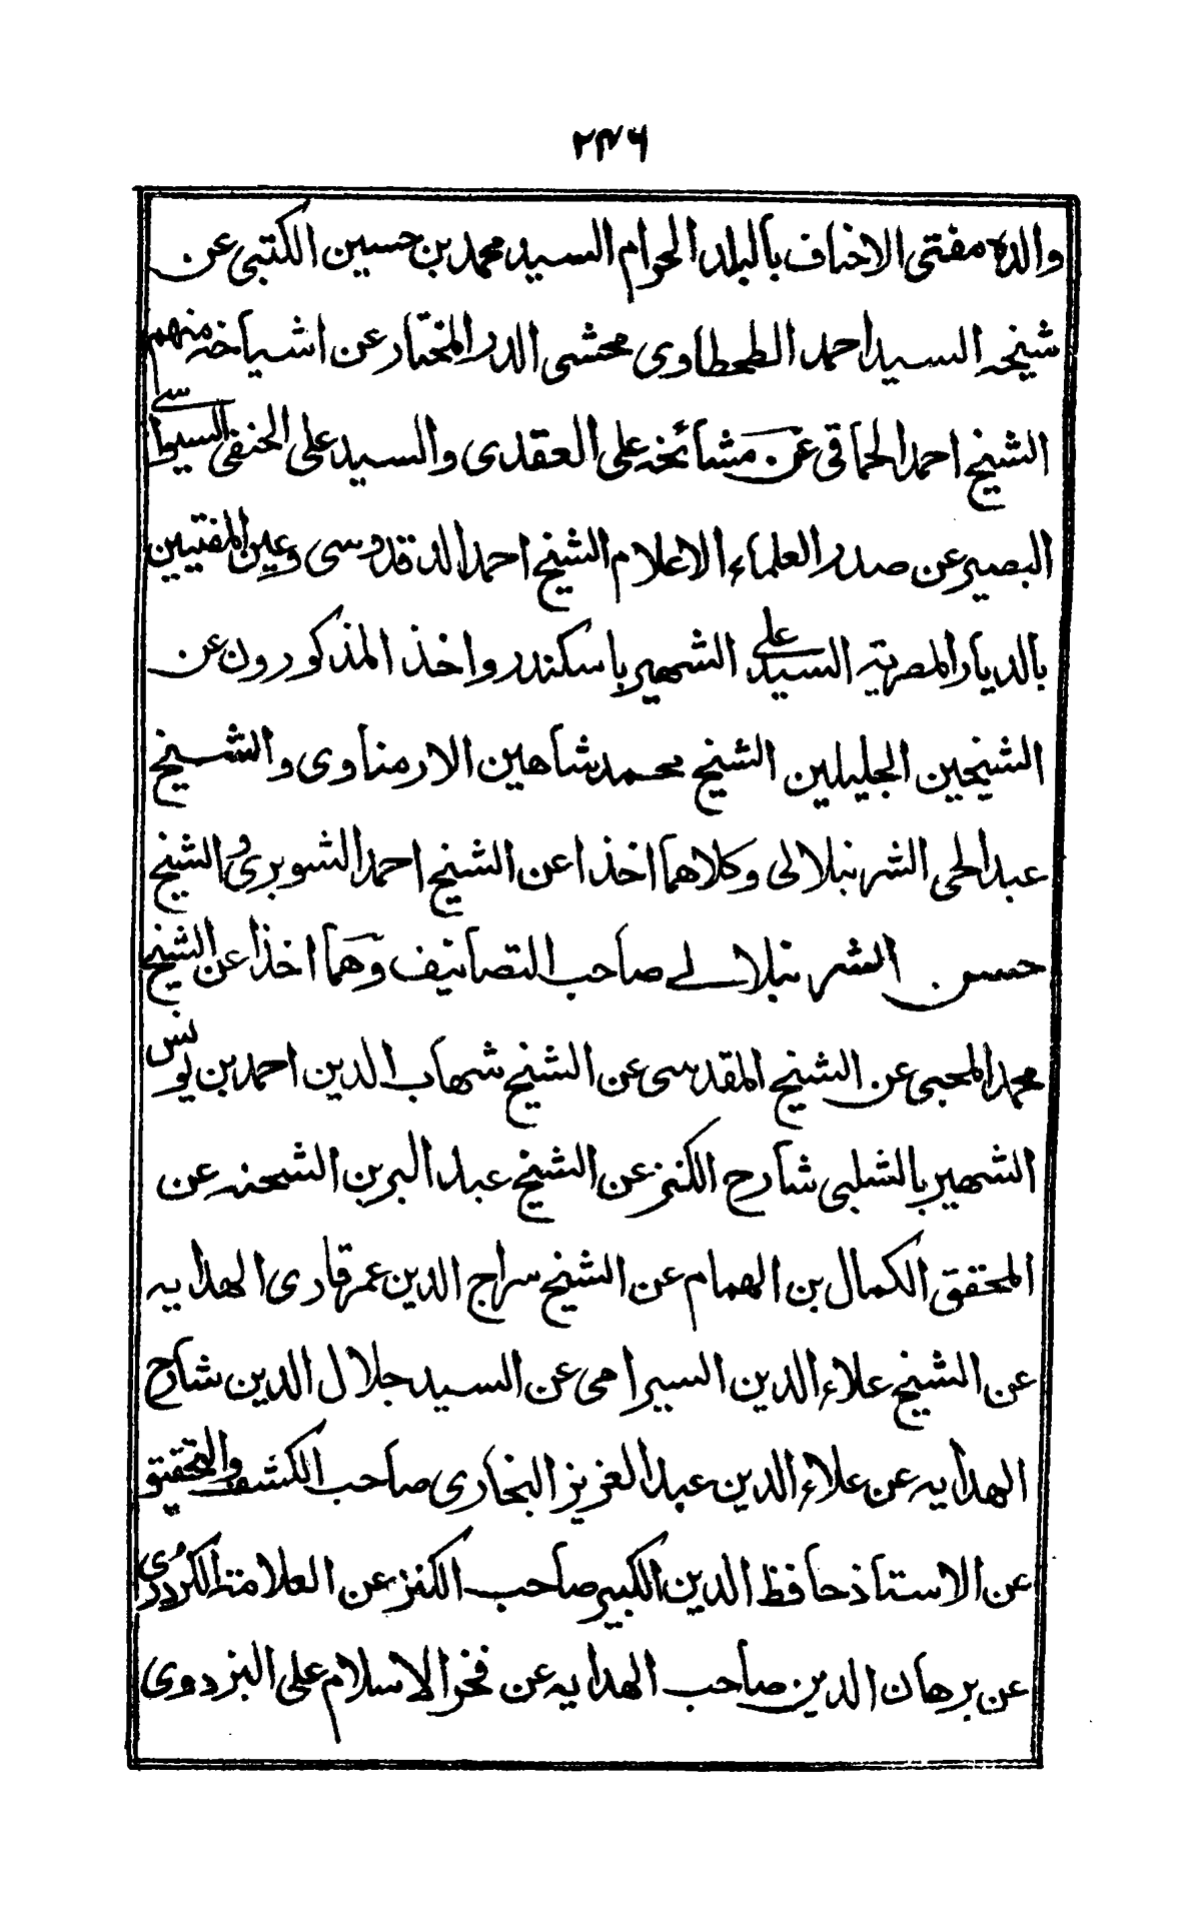 ۲۴۶
والده مفتى الاحناف بالبلد الحرام السيد محمد بن حسين الكتبي عن
شيخه السيد احمد الطحطاوى محشى الدر المختار عن اشياخه منهم
الشيخ احمد الحماقى عن مشائخه على العقدى والسيد على الحنفى السيواسى
البصير عن صدر العلماء الاعلام الشيخ احمد الدقدوسى وعين المفتيين
بالديار المصرية السيد على الشهير باسكندر واخذ المذكورون عن
الشيخين الجليلين الشيخ محمد شاهين الارمناوى والشيخ
عبد الحى الشرنبلالى وكلاهما اخذا عن الشيخ احمد الشوبرى والشيخ
حسن الشرنبلالے صاحب التصانيف وهما اخذا عن الشيخ
محمد المحبى عن الشيخ المقدسى عن الشيخ شهاب الدين احمد بن يونس
الشهير بالشلبى شارح الكنز عن الشيخ عبد البر بن الشحنه عن
المحقق الكمال بن الهمام عن الشيخ سراج الدين عمر قارى الهدايه
عن الشيخ علاء الدين السيرامى عن السيد جلال الدين شارح
الهدايه عن علاء الدين عبد العزيز البخارى صاحب الكشف والتحقيق
عن الاستاذ حافظ الدين الكبير صاحب الكنز عن العلامة الكردرى
عن برهان الدين صاحب الهدايه عن فخر الاسلام على البزدوى